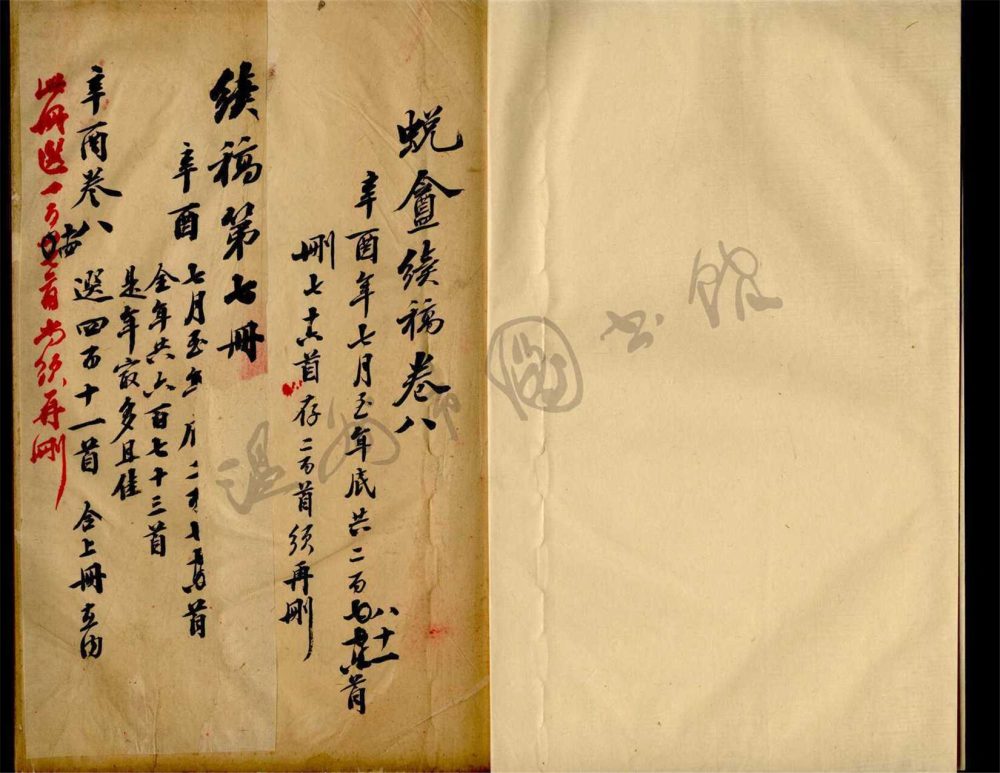 蜕盦续稿卷八
辛酉年七月至年底共二百八十一首
删七十六首存二百首须再删
续稿第七册
辛酉七月至年 二百七十 首
全年共六百七十三首
是年最多且佳
辛酉卷八 选四百十一首 合上册在内
此册选一百 首尚须再删
温州市图书馆